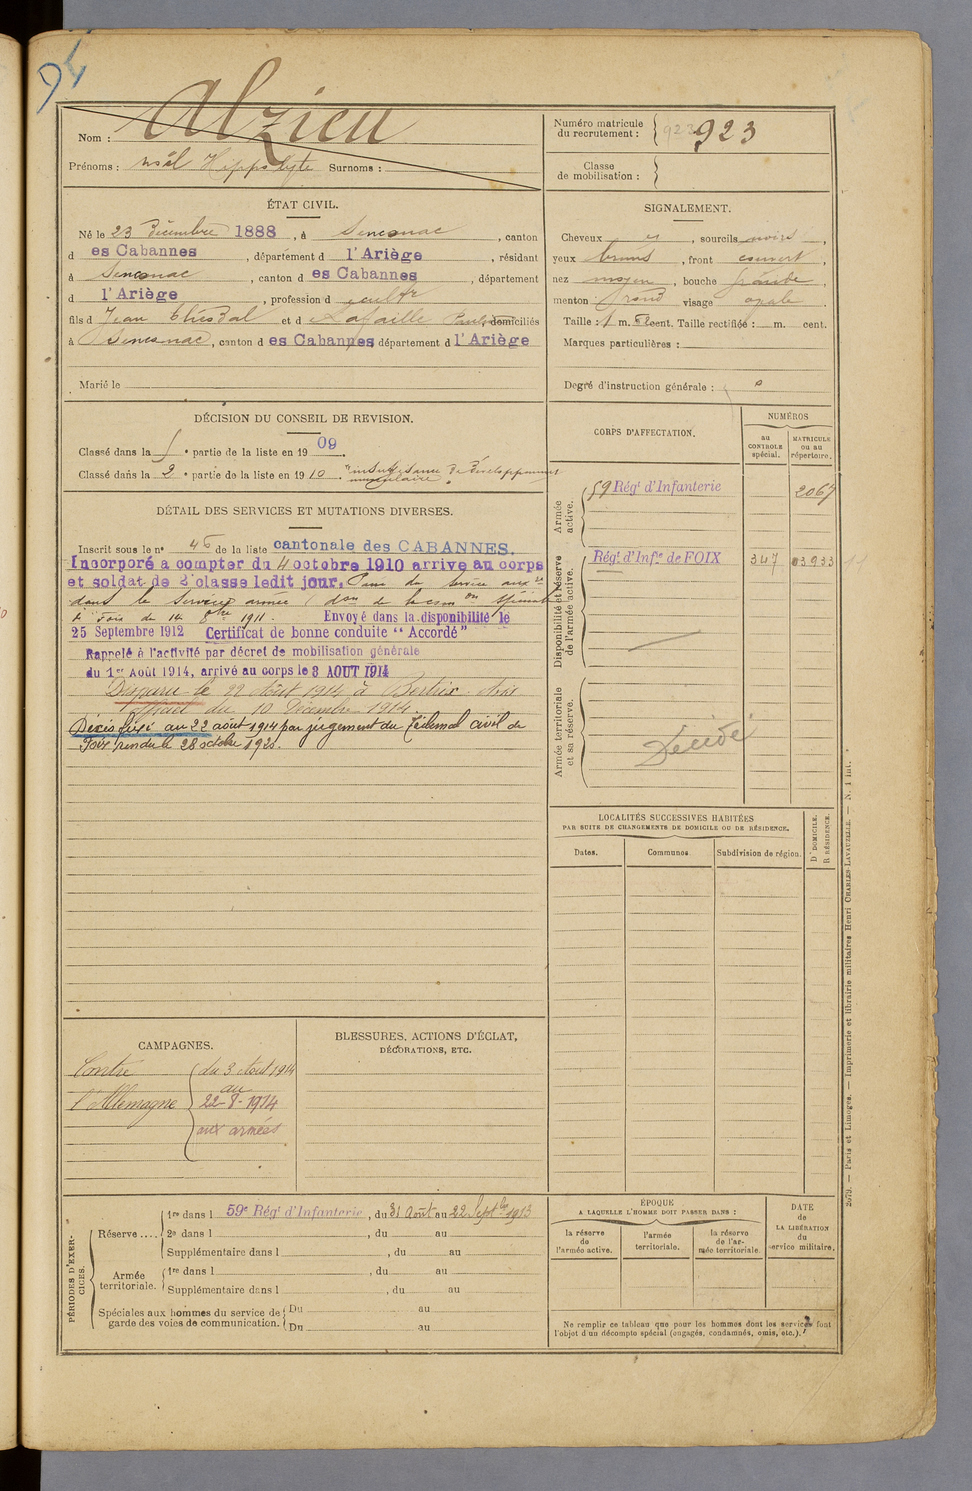 94
Nom : Alzieu
Prénoms : Noël Hippolyte Surnoms :
Numéro matricule du recrutement : 923 923
Classe de mobilisation :
ÉTAT CIVIL.
Né le 23 Décembre 1888, à Senconac, canton
d es Cabannes, département d l'Ariège, résidant
à Senconac, canton d es Cabannes, département
d l'Ariège, profession d
fils d Jean et d Lafaille domiciliés
à Senconac, canton d es Cabannes département d l'Ariège
Marié le
SIGNALEMENT.
Cheveux et, sourcils noirs,
yeux bruns, front couvert,
nez moyen, bouche grande,
menton rond visage ovale.
Taille : 1 m. cent. Taille rectifiée : m. cent.
Marques particulières :
Degré d'instruction générale :
DÉCISION DU CONSEIL DE REVISION.
Classé dans la 5e partie de la liste en 1909.
Classé dans la 2e partie de la liste en 1910. insuffisance de développement musculaire.
DÉTAIL DES SERVICES ET MUTATIONS DIVERSES.
Inscrit sous le n° 46 de la liste cantonale des CABANNES.
Incorporé a compter du 4 octobre 1910 arrivé au corps
et soldat de 2e classe ledit jour. du service aux
dans le service armé
de Foix du 14 8bre 1911. Envoyé dans la disponibilité le
25 Septembre 1912 Certificat de bonne conduite "Accordé"
Rappelé à l'activité par décret de mobilisation générale
du 1er Août 1914, arrivé au corps le 3 AOUT 1914
Disparu le 22 Août 1914 à Bertrix. Avis
officiel du 10 Décembre 1914.
Décès fixé au 22 août 1914 par jugement du Tribunal civil de
Foix rendu le 28 octobre 1920.
CORPS D'AFFECTATION.
NUMÉROS
au CONTROLE spécial.
MATRICULE ou au répertoire.
Armée active.
59 Régt d'Infanterie 2067
Disponibilité et réserve de l'armée active.
Régt d'Infie de FOIX 347 03933
Armée territoriale et sa réserve.
Décédé
LOCALITÉS SUCCESSIVES HABITÉES
PAR SUITE DE CHANGEMENTS DE DOMICILE OU DE RÉSIDENCE.
Dates.
Communes
Subdivision de région.
D. DOMICILE.
R. RÉSIDENCE.
CAMPAGNES.
Contre
l'Allemagne
du 3 Août 1914
au
22-8-1914
aux armées
BLESSURES, ACTIONS D'ÉCLAT,
DÉCORATIONS, ETC.
PÉRIODES D'EXERCICES.
Réserve .... 1re dans l 59e Régt d'Infanterie, du 31 Août au 22 Septbre 1913
2e dans l , du au
Supplémentaire dans l , du au
Armée territoriale. 1re dans l , du au
Supplémentaire dans l , du au
Spéciales aux hommes du service de garde des voies de communication. Du au
Du au
ÉPOQUE
A LAQUELLE L'HOMME DOIT PASSER DANS :
la réserve de l'armée active.
l'armée territoriale.
la réserve de l'armée territoriale.
DATE de LA LIBÉRATION du service militaire.
Ne remplir ce tableau que pour les hommes dont les services font
l'objet d'un décompte spécial (engagés, condamnés, omis, etc.).
2679. — Paris et Limoges. — Imprimerie et librairie militaires Henri CHARLES-LAVAUZELLE. — N. 1 Int.